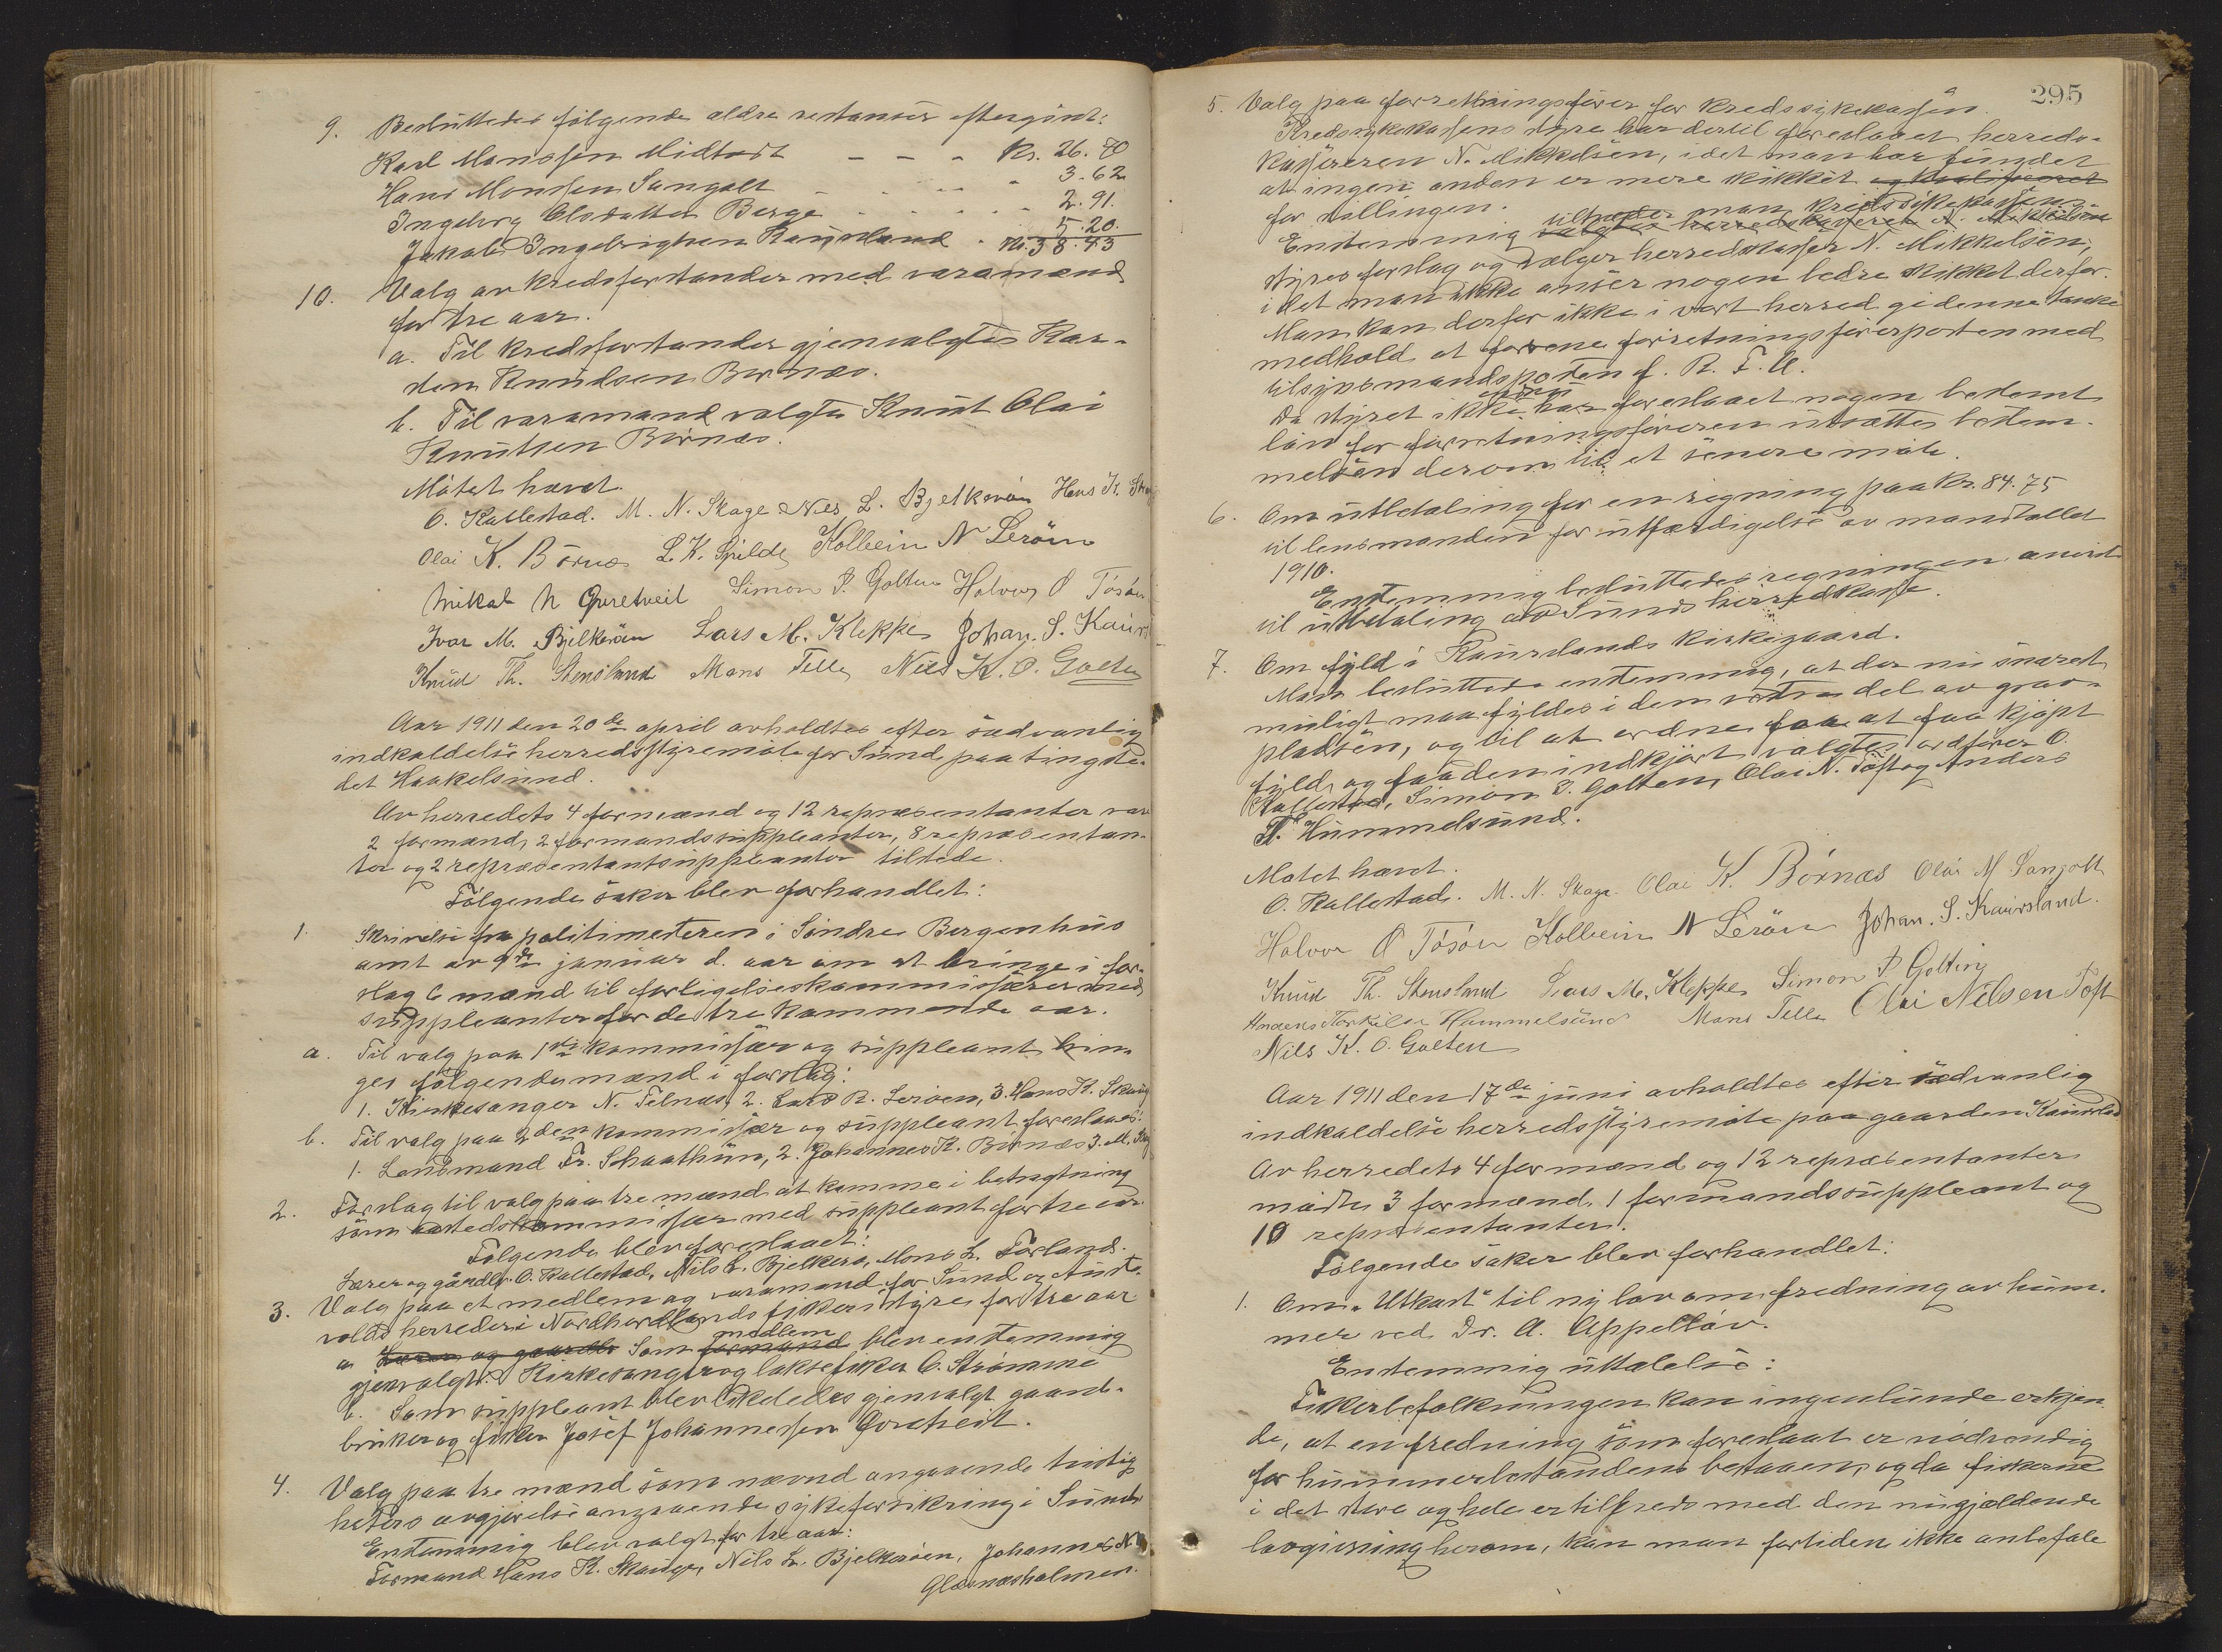 9. Besluttedes følgende ældre restanser eftergivt:
Karl Monssen Midttvedt - - - Kr. 26.70
Hans Monsen Sangolt - - - - 3.62
Ingeborg Olsdatter Berge - - - - - 2.91.
Jakob Ingebrigtsen Kausland - 5.20.
Kr. 38.43
10. Valg av kredsforstander med varamænd
for tre aar.
a. Til kredsforstander gjenvalgtes Kar-
sten Knudsen Børnæs.
b. Til varamand valgtes Knut Olai
Knutsen Børnæs.
Møtet hævet.
O. Kallestad. M. N. Skage Nils L. Bjelkerøen Hans K. Skaug
Olai K. Børnes L. K. Spilde Kolbein N Lerøen
Mikal N Qvretveit Simon P. Golten Halvor O Tøsøen
Ivar M. Bjelkerøen Lars M. Kleppe Johan. S. Kaursl
Knud Th. Stensland Mons Telle Nils K. O. Golten
Aar 1911 den 20de april avholdtes efter sædvanlig
indkaldelse herredsstyremøte for Sund paa tingste-
det Haakelsund.
Av herredets 4 formænd og 12 repræsentanter var
2 formænd, 2 formandssuppleanter, 8 repræsentan-
ter og 2 repræsentantsuppleanter tilstede.
Følgende saker blev forhandlet:
1. Skrivelse fra politimesteren i Søndre Bergenhus
amt av 9de januar d. aar om at bringe i for-
slag 6 mænd til forligelseskommissærer med
suppleanter for de tre kommende aar.
a. Til valg paa 1ste kommissær og suppleant brin-
ges følgende mænd i forslag:
1. Kirkesanger N. Telnæs, 2. Lars R. Lerøen, 3. Hans K. Skauge
b. Til valg paa 2den kommissær og suppleant foreslaaes:
1. Lensmand Fr. Schaathun, 2. Johannes K. Børnæs 3. M. Skog
2. Forslag til valg paa tre mænd at komme i betragtning
som aastedskommissær med suppleant for tre aar.
Følgende blev foreslaaet:
Lærer og gårdbr. O. Kallestad, Nils L. Bjelkerø, Mons L. Førland.
3. Valg paa et medlem og varamand for Sund og Aust-
volds herreder i Nordhordlands fiskeristyre for tre aar
a Lærer og gaardbr Som formand medlem blev enstemmig
gjenvalgt: Kirkesanger og laksefisker O. Strømme
b. Som suppleant blev likeledes gjenvalgt gaard-
bruker og fisker Josef Johannessen Qvretveit.
4. Valg paa tre mænd som nævnd angaaende tvistig-
heters avgjørelse angaaende sykeforsikring i Sunds
Enstemmig blev valgt for tre aar:
Formand Hans K. Skauge, Nils L. Bjelkerøen, Johannes N.
Glæsnæsholmen.
295
5. Valg paa forretningsfører for kredssykekassen.
Kredssykekassens styre har dertil foreslaaet herreds-
kassereren N. Mikkelsen, idet man har fundet
at ingen anden er mere skikket og kvalificeret
for stillingen.
Enstemmig valgtes herredskasserer N. Mikkelsen tiltræder man kredssykekassens
styres forslag og vælger herredskasserer N. Mikkelsen,
idet man ikke anser nogen bedre skikket derfor.
Man kan derfor ikke i vort herred gi denne tanke
medhold at forene forretningsførerposten med
tilsynsmandsposten f. R. F. A.
Da styret ikke endnu har foreslaaet nogen bestemt
løn for forretningsføreren utsættes bestem-
melsen derom til et senere møte.
6. Om utbetaling for en regning paa Kr. 84.75
til lensmanden for utfærdigelse av mandtallet
1910.
Enstemmig besluttedes regningen anvist
til utbetaling av Sunds herredskasse.
7. Om fyld i Kauslands kirkegaard.
Man besluttede enstemmig, at der nu snarest
muligt maa fyldes i den vestre del av grav-
pladsen, og til at ordne paa at faa kjøpt
fyld, og faa den indkjørt valgtes ordfører O.
Kallestad, Simon P. Golten, Olai N. Toft og Anders
T. Hummelsund.
Møtet hævet.
O. Kallestad. M. N. Skage. Olai K. Børnæs Olai M Sangolt
Halvor O Tøsøen Kolbein N Lerøen Johan. S. Kausland.
Knud Th. Stensland Lars M. Kleppe Simon P Golten
Anders Torkilsen Hummelsund Mons Telle Olai Nilsen Toft
Nils K. O. Golten
Aar 1911 den 17de juni avholdtes efter sædvanlig
indkaldelse herredsstyremøte paa gaarden Kausland
Av herredets 4 formænd og 12 repræsentanter
møtte 3 formænd, 1 formandssuppleant og
10 repræsentanter.
Følgende saker blev forhandlet:
1. Om "Utkast" til ny lov om fredning av hum-
mer ved Dr. A. Appelløv.
Enstemmig uttalelse:
Fiskerbefolkningen kan ingenlunde erkjen-
de, at en fredning som foreslaat er nødvendig
for hummerbestandens bestaaen, og da fiskerne
i det store og hele er tilfreds med den nugjældende
lovgivning herom, kan man fortiden ikke anbefale